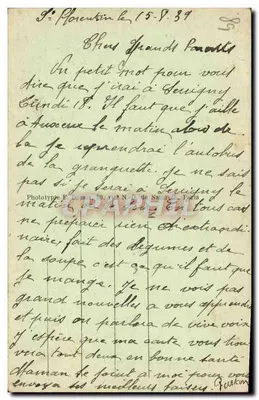 St Florentin le 15-8-39
89
Chers Grands Parents
Un petit mot pour vous
dire que j'irai à Serrigny
Lundi 18. Il faut que j'aille
à Auxerre le matin alors de
la je reprendrai l'autobus
de la granquette. Je ne sais
pas si je serai à Serrigny le
matin tous cas
ne préparer rien d'extraordi
naire, fait des légumes et de
la soupe c'est ça qu'il faut que
je mange. Je ne vois pas
grand nouvelles a vous apprendre
et puis on parlera de vive voix
J'espère que ma carte vous trou
vera tout deux en bonne santé
Maman se joint à moi pour vous
envoyer ses meilleurs baisers.